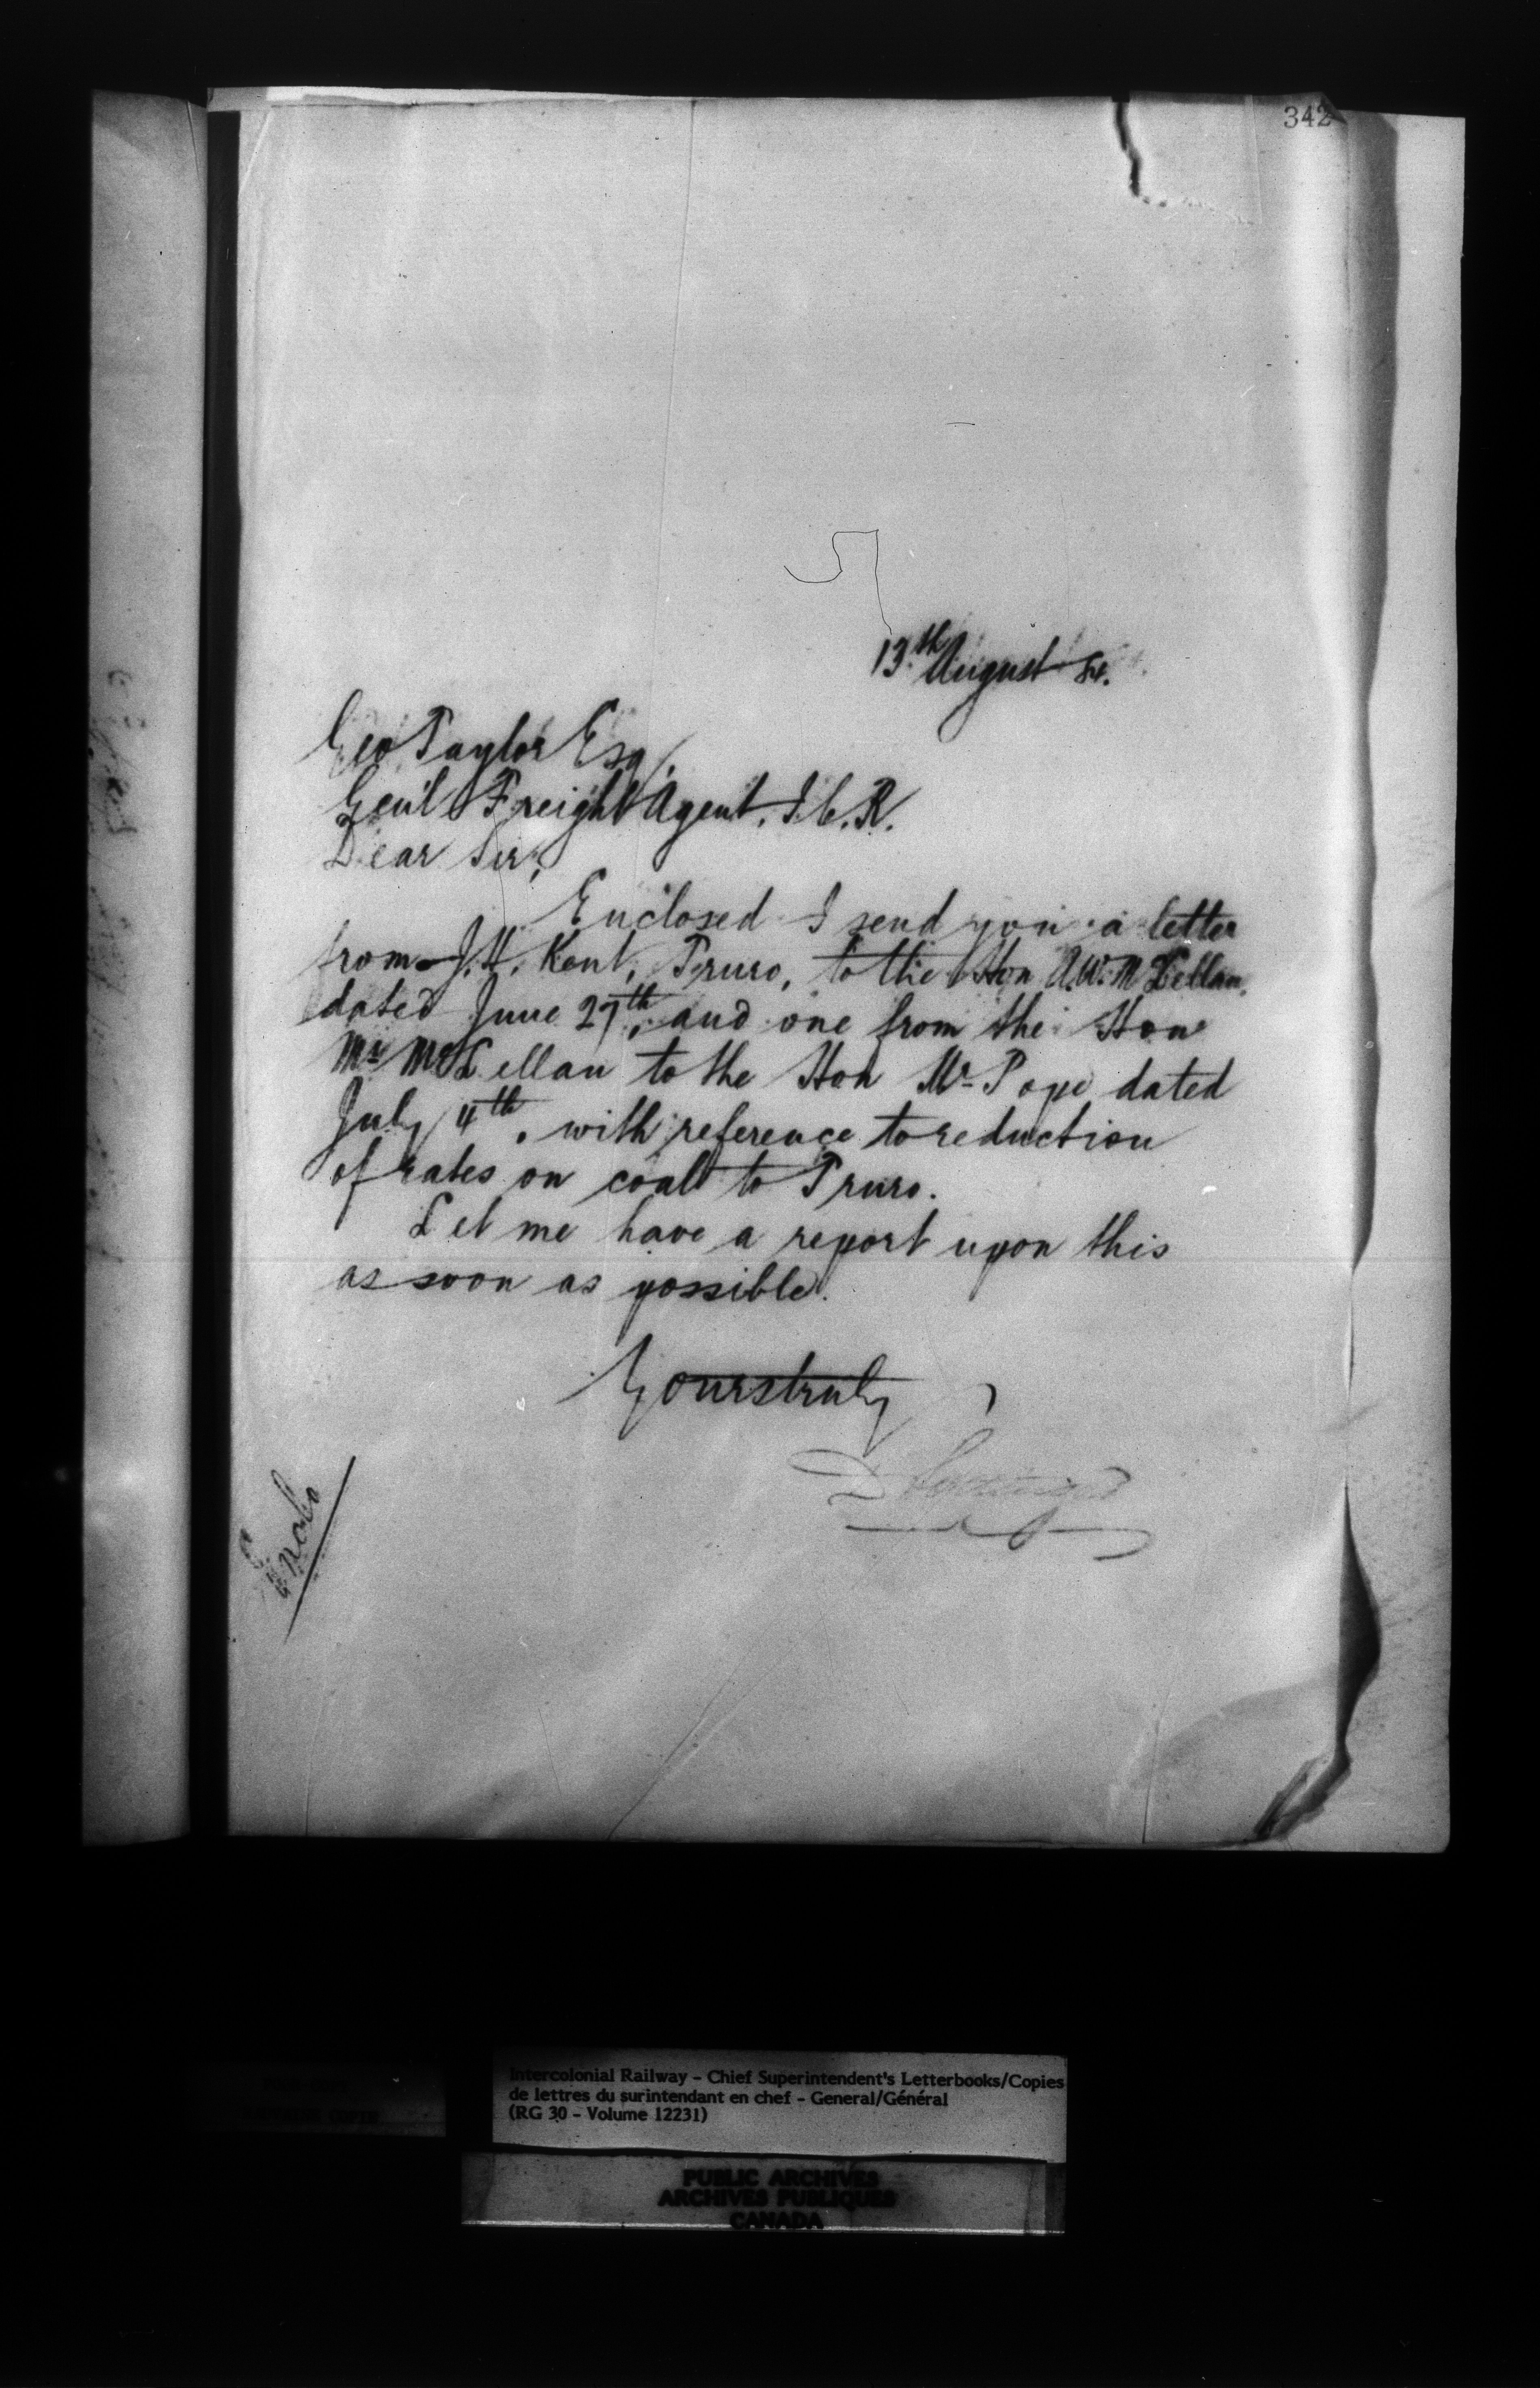 342
13th August 84.
Geo Taylor Esq,
Gen'l Freight Agent, I.C.R.
Dear Sir,
Enclosed I send you a letter
from J.H. Kent, Truro, to the Hon A.W. McLellan,
dated June 27th, and one from the Hon
Mr McLellan to the Hon Mr Pope dated
July 4th, with reference to reduction
of rates on coal to Truro.
Let me have a report upon this
as soon as possible.
Yours truly
D
Enclo
Intercolonial Railway - Chief Superintendent's Letterbooks/Copies
de lettres du surintendant en chef - General/Général
(RG 30 - Volume 12231)
PUBLIC ARCHIVES
ARCHIVES PUBLIQUES
CANADA